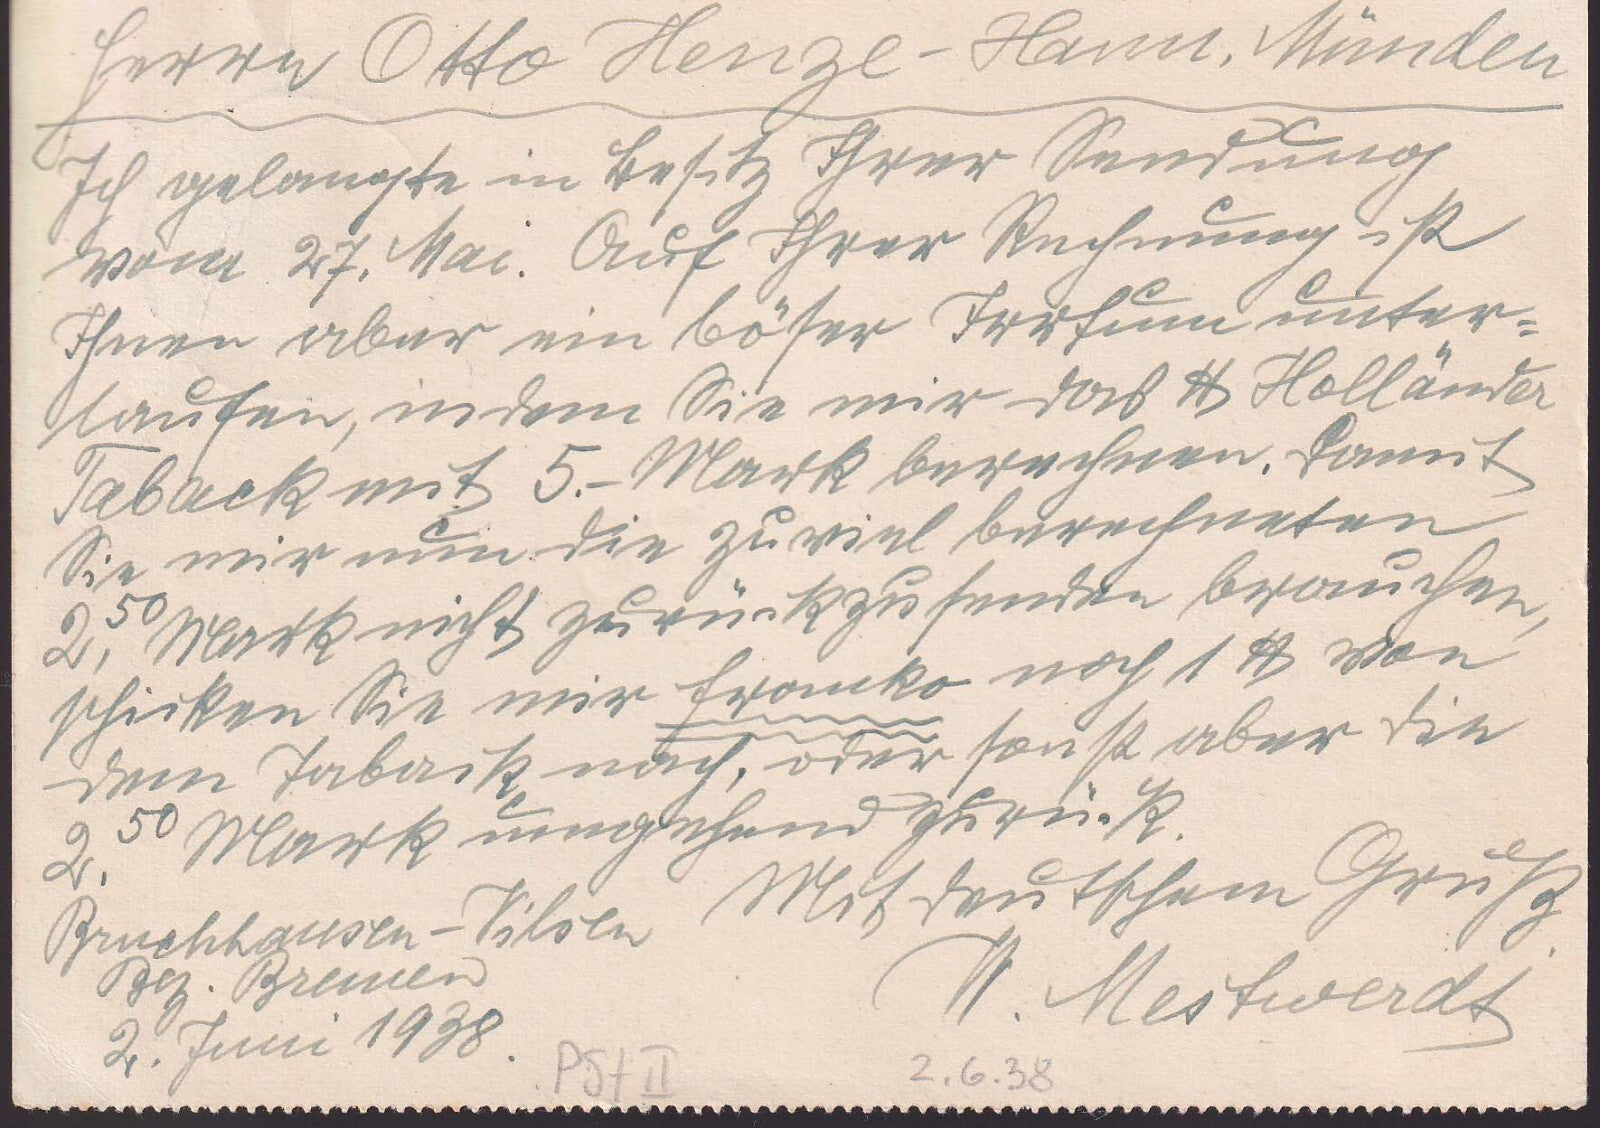 Herrn Otto Henze - Hann. Münden
Ich gelangte in Besitz Ihrer Sendung
vom 27. Mai. Auf Ihrer Rechnung ist
Ihnen aber ein böser Irrtum unter=
laufen, indem Sie mir das ℔ Holländer
Taback mit 5.- Mark berechnen. Damit
Sie mir nun die zuviel berechneten
2,50 Mark nicht zurückzusenden brauchen,
schicken Sie mir franko noch 1 ℔ von
dem Taback nach, oder sonst aber die
2,50 Mark umgehend zurück.
Mit deutschem Gruß
Bruchhausen-Vilsen
Bez. Bremen
W. Mestwerdt
2. Juni 1938.
PSt II
2.6.38